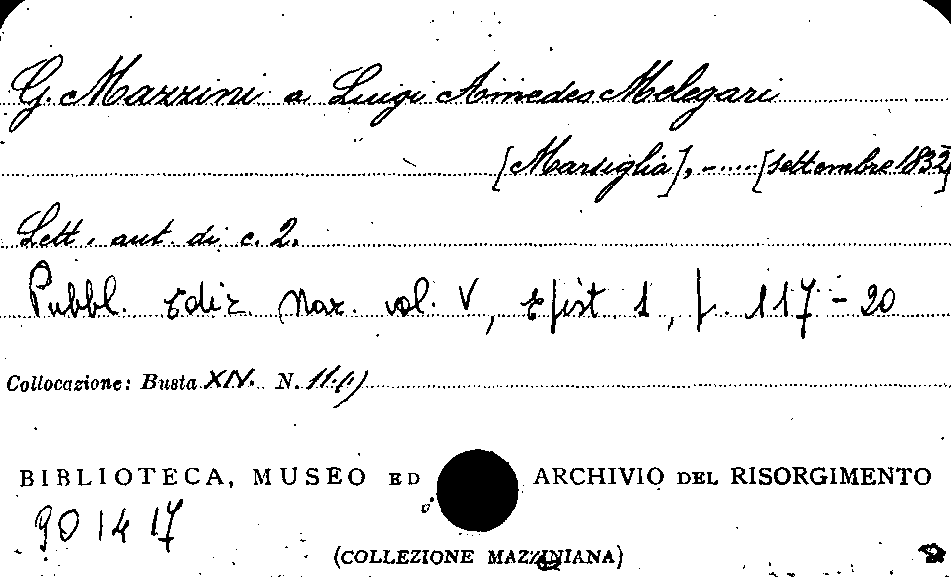 G. Mazzini a Luigi Amedeo Melegari
[Marsiglia], ...... [settembre 1832]
Lett. aut. di c. 2.
Pubbl. Ediz. Naz. vol. V, Epist. 1, p. 117-20
Collocazione: Busta XIV. N. 11.(1)
BIBLIOTECA, MUSEO ED ARCHIVIO DEL RISORGIMENTO
901417
(COLLEZIONE MAZZINIANA)